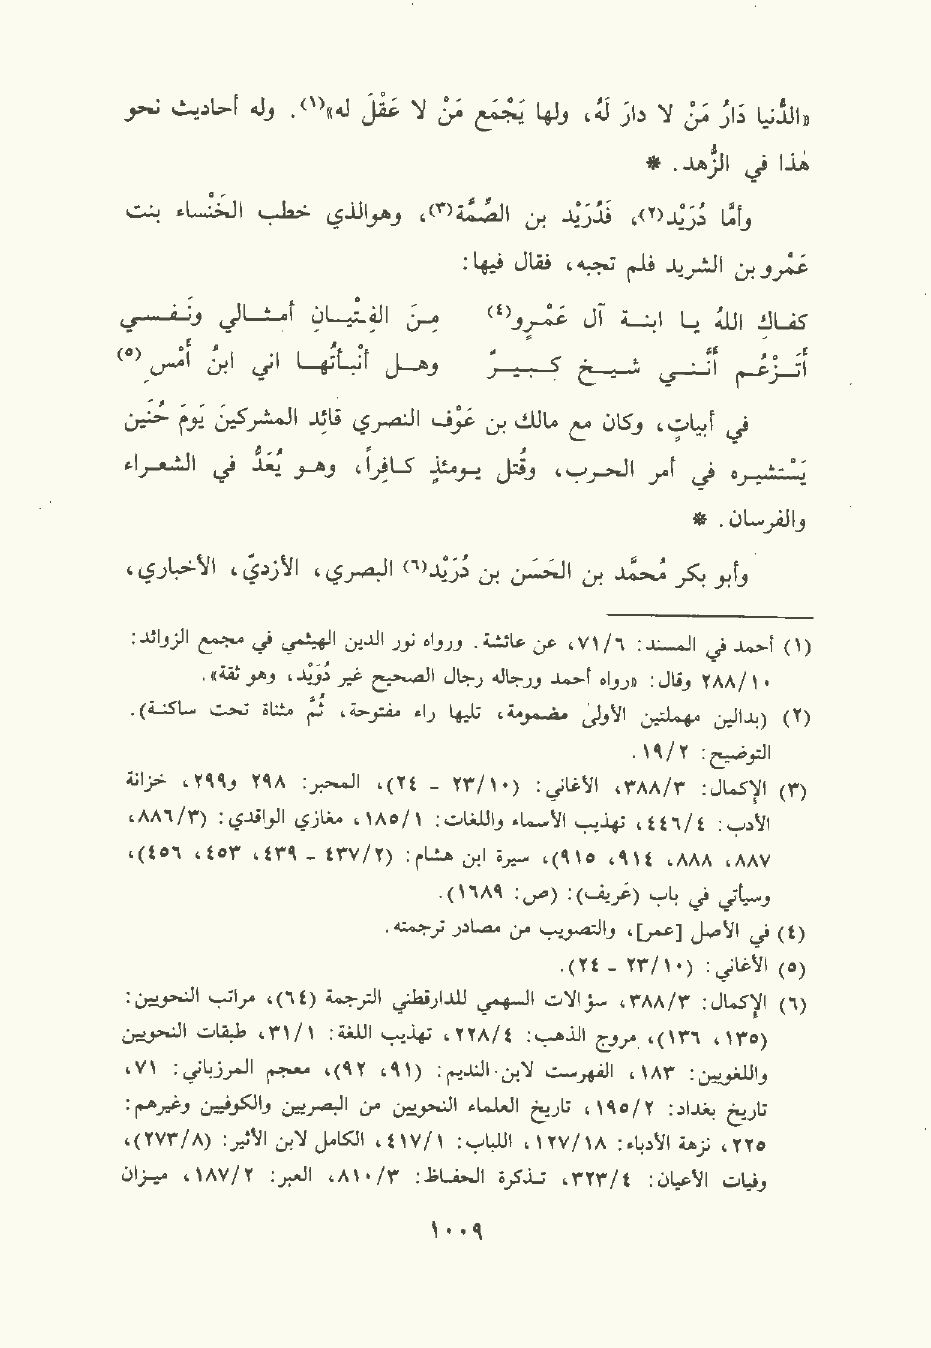 «الدُّنيا دَارُ مَنْ لا دارَ لَهُ، ولها يَجْمَع مَنْ لا عَقْلَ له»(١). وله أحاديث نحو
هٰذا في الزُّهد. *
وأمَّا دُرَيْد(٢)، فَدُرَيْد بن الصُّمَّة(٣)، وهوالذي خطب الخَنْساء بنت
عَمْرو بن الشريد فلم تجبه، فقال فيها:
كفـاك اللهُ يـا ابنـة آل عَمْـرو(٤) مـن الفِتْيـان أمثـالي ونَفـسـي
أَتَـزْعُـم أنَّنـي شيـخ كـبـيـرٌ وهـل أنْبـأتُهـا اني ابنُ أَمْسِ(٥)
في أبياتٍ، وكان مع مالك بن عَوْف النصري قائد المشركينَ يَومَ حُنَين
يَسْتشيـره في أمر الحـرب، وقُتل يـومئذٍ كـافِراً، وهـو يُعَدُّ في الشعـراء
والفرسان. *
وأبو بكر مُحمَّد بن الحَسَن بن دُرَيْد(٦) البصري، الأزديّ، الأخباري،
(١) أحمد في المسند: ٦/٧١، عن عائشة. ورواه نور الدين الهيثمي في مجمع الزوائد:
١٠/٢٨٨ وقال: «رواه أحمد ورجاله رجال الصحيح غير دُوَيْد، وهو ثقة».
(٢) (بدالين مهملتين الأولىٰ مضمومة، تليها راء مفتوحة، ثُم مثناة تحت ساكنة).
التوضيح: ٢/١٩.
(٣) الإكمال: ٣/٣٨٨، الأغاني: (١٠/٢٣ - ٢٤)، المحبر: ٢٩٨ و٢٩٩، خزانة
الأدب: ٤/٤٤٦، تهذيب الأسماء واللغات: ١/١٨٥، مغازي الواقدي: (٣/٨٨٦،
٨٨٧، ٨٨٨، ٩١٤، ٩١٥)، سيرة ابن هشام: (٢/٤٣٧ - ٤٣٩، ٤٥٣، ٤٥٦)،
وسيأتي في باب (غَريف): (ص: ١٦٨٩).
(٤) في الأصل [عمر]، والتصويب من مصادر ترجمته.
(٥) الأغاني: (١٠/٢٣ - ٢٤).
(٦) الإكمال: ٣/٣٨٨، سؤالات السهمي للدارقطني الترجمة (٦٤)، مراتب النحويين:
(١٣٥، ١٣٦)، مروج الذهب: ٤/٢٢٨، تهذيب اللغة: ١/٣١، طبقات النحويين
واللغويين: ١٨٣، الفهرست لابن النديم: (٩١، ٩٢)، معجم المرزباني: ٧١،
تاريخ بغداد: ٢/١٩٥، تاريخ العلماء النحويين من البصريين والكوفيين وغيرهم:
٢٢٥، نزهة الأدباء: ١٨/١٢٧، اللباب: ١/٤١٧، الكامل لابن الأثير: (٨/٢٧٣)،
وفيات الأعيان: ٤/٣٢٣، تـذكرة الحفـاظ: ٣/٨١٠، العبر: ٢/١٨٧، ميـزان
١٠٠٩